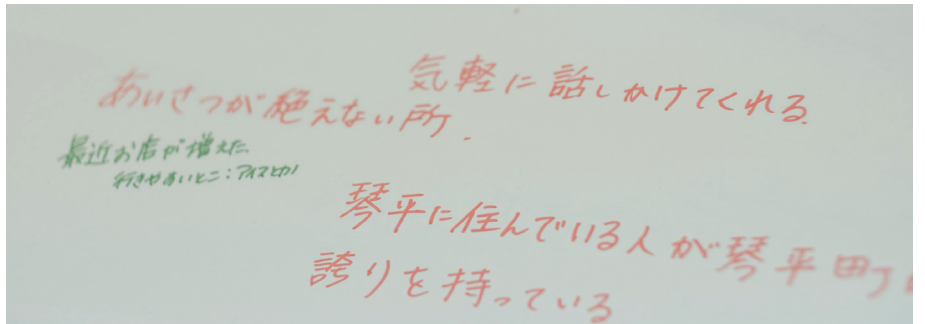 気軽に話しかけてくれる.
あいさつが絶えない所.
最近お店が増えた.
行きやすいとこ：アイスとか
琴平に住んでいる人が琴平町に
誇りを持っている